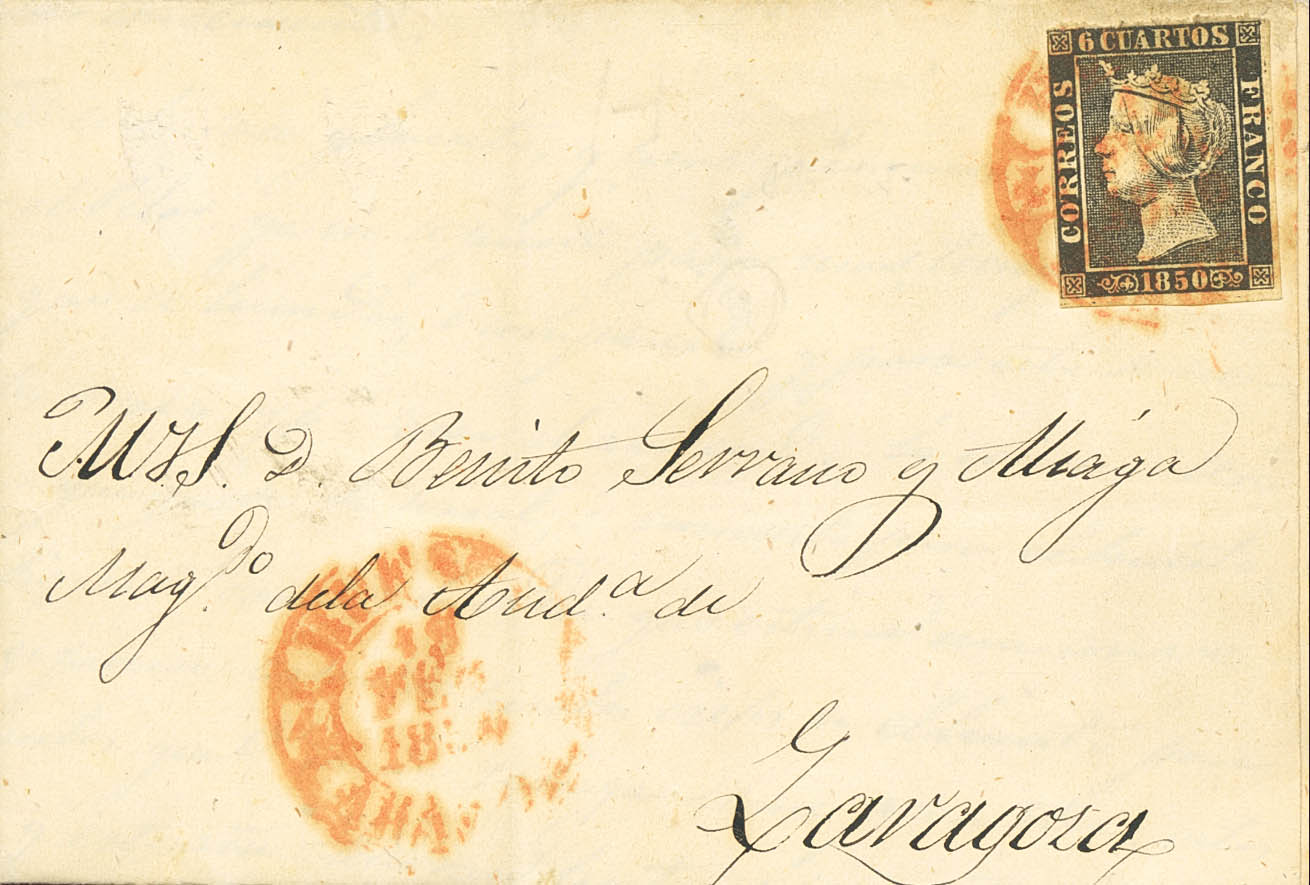 6 CUARTOS
CORREOS
FRANCO
1850
M Y S. D. Benito Serrano y Aliaga
Mag.do dela Aud.a de
Zaragoza
18
FEB